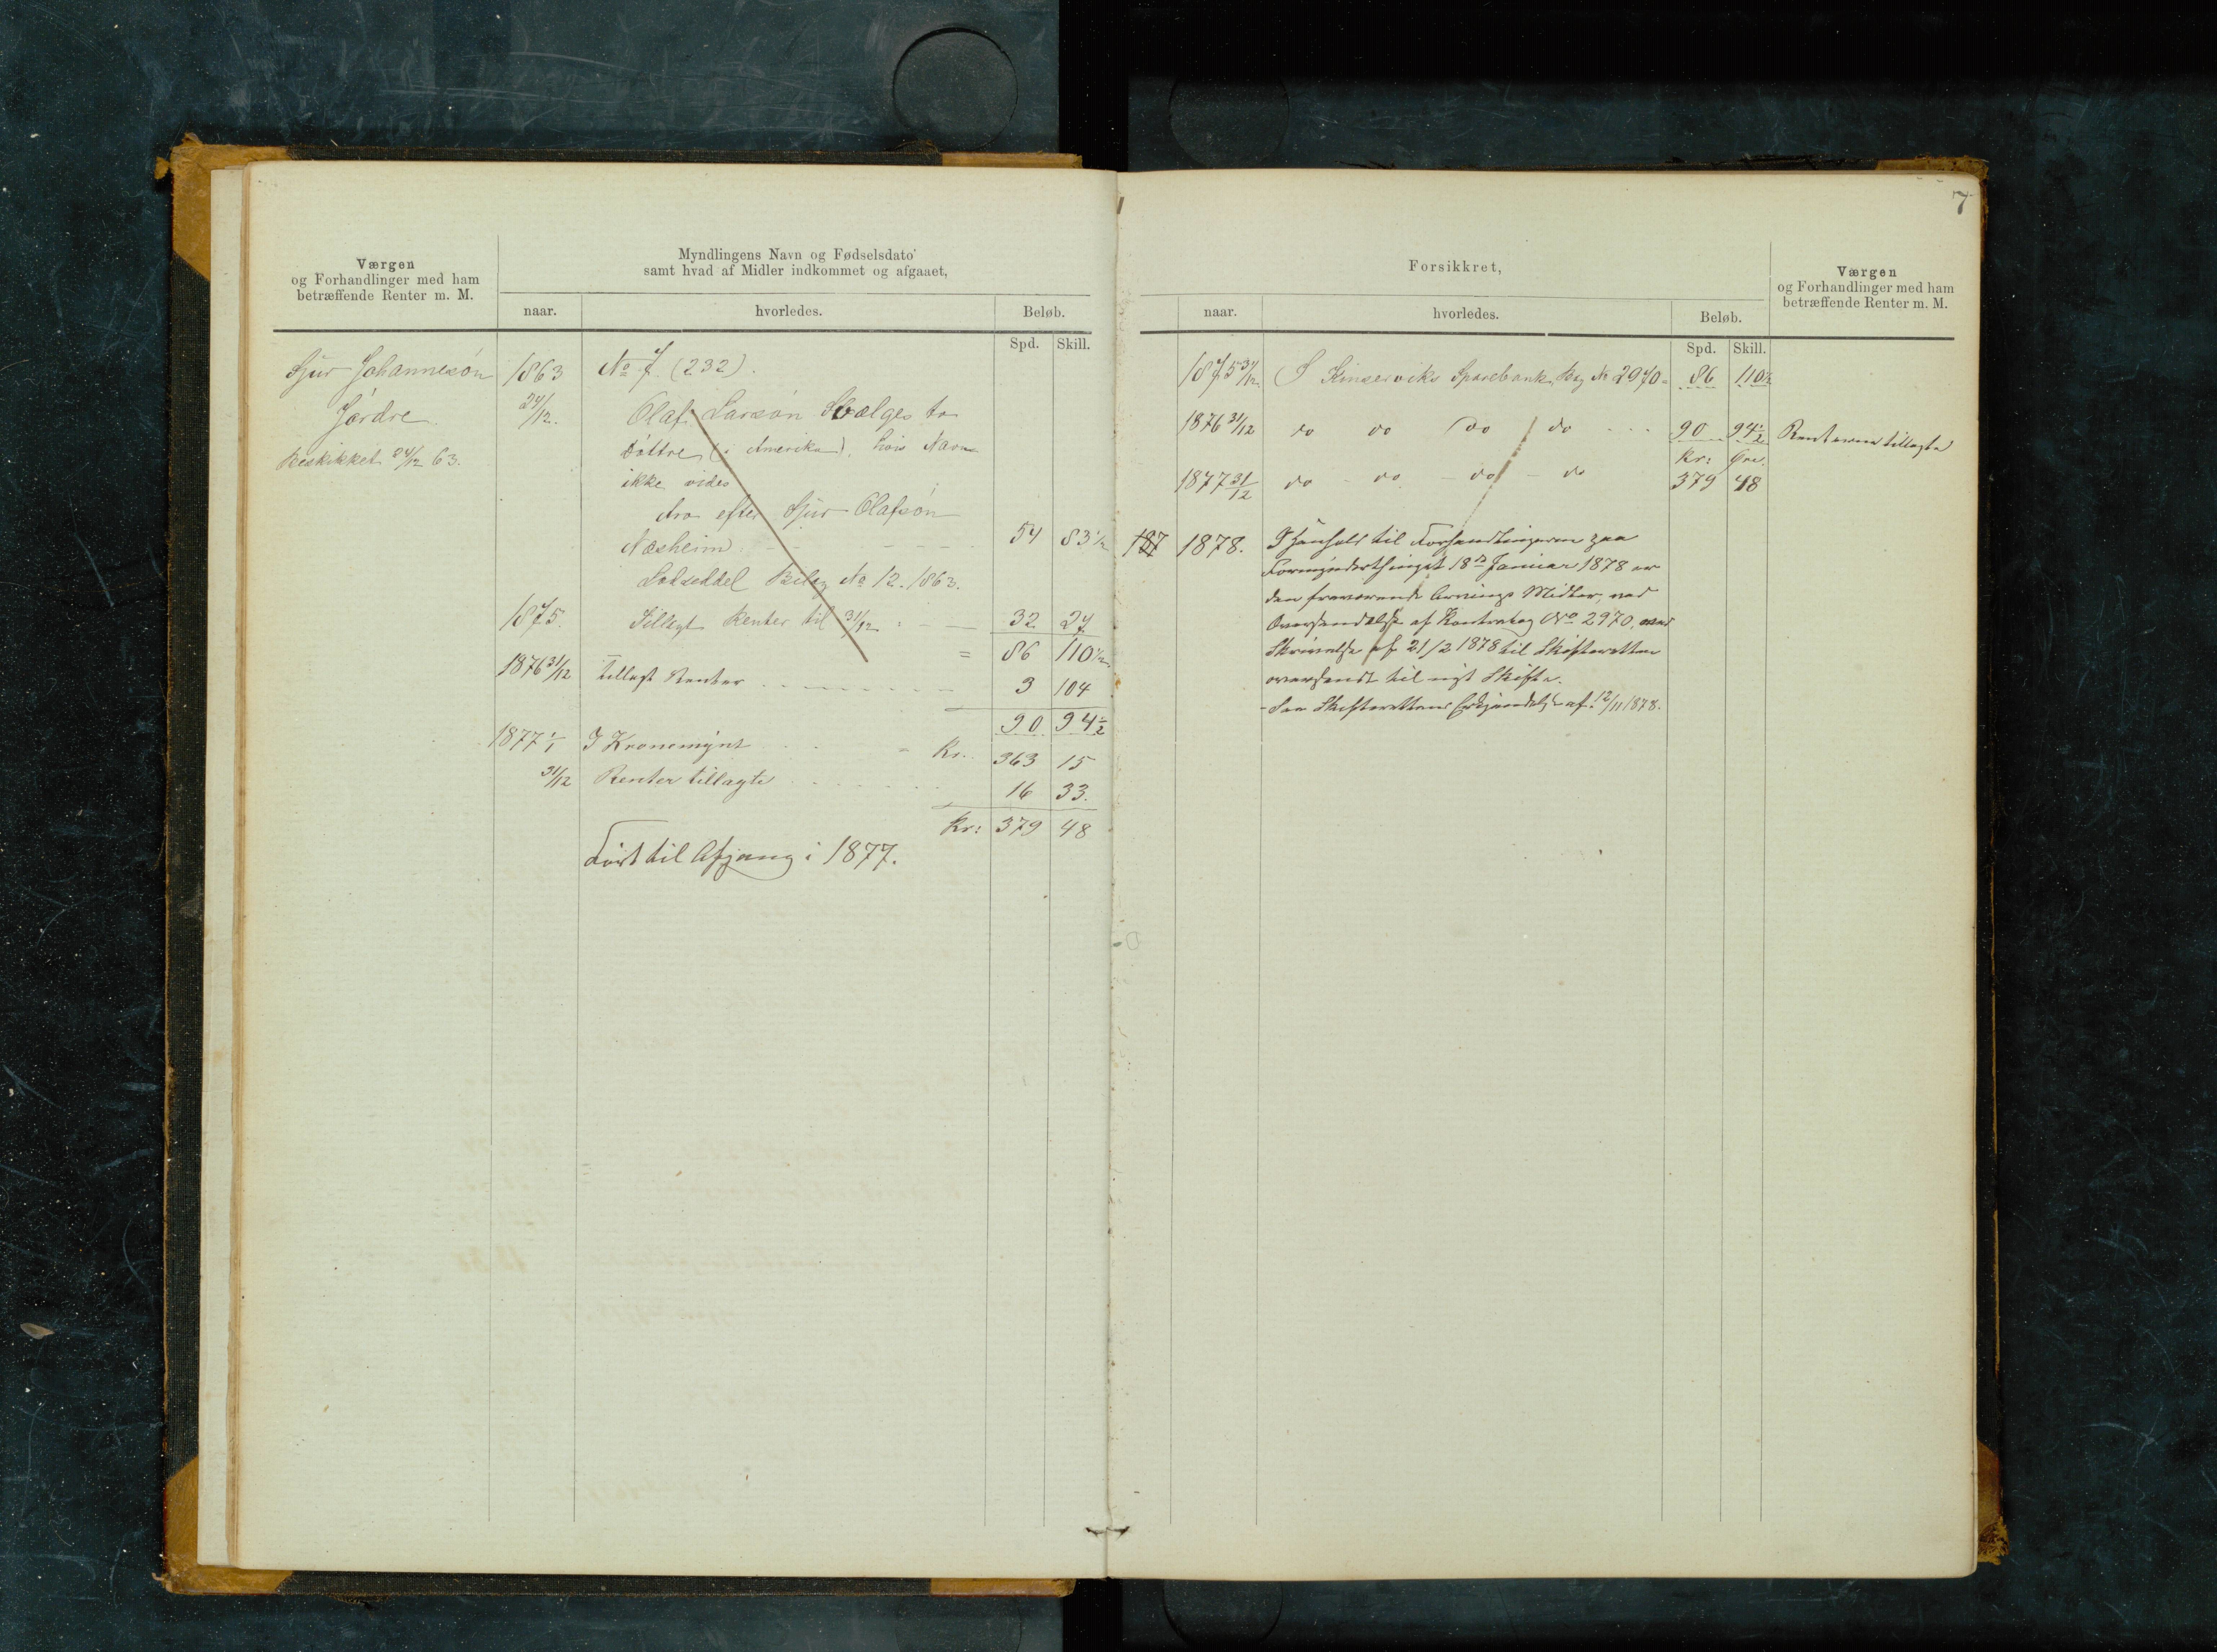 7
Værgen
og Forhandlinger med ham
betræffende Renter m. M.
Myndlingens Navn og Fødselsdato
samt hvad af Midler indkommet og afgaaet,
naar.
hvorledes.
Beløb.
Spd. Skill.
Sjur Johannesøn
Jördre
Beskikket 24/12 63.
1863 No 7. (232).
24/12. Olaf Larsøn Helges to
Döttre (i Amerika), hvis Navne
ikke vides
Arv efter Sjur Olafsøn
Næsheim. - - - - - 54 83 1/2
Lodseddel Bilag No 12. 1863.
1875. Tillagt Renter til 31/12 : - - 32 27
= 86 110 1/2
1876 31/12 tillagt Renter . . - - - - 3 104
90 94 1/2
1877 1/1 I Kronemynt . . - Kr. 363 15
31/12 Renter tillagte . . . . . . 16 33.
Kr: 379 48
Ført til Afgang i 1877.
Forsikkret,
naar.
hvorledes.
Beløb.
Værgen
og Forhandlinger med ham
betræffende Renter m. M.
Spd. Skill.
1875 31/12 I Kinserviks Sparebank, Bog No 2970 - 86 110 1/2
1876 31/12 do do do do - - - 90 94 1/2 Renterne tillagte
Kr: Øre.
1877 31/12 do - do - do - do 379 48
187 1878. I Henhold til Forhandlingerne paa
Formynderthinget 18de Januar 1878 er
den fraværende Arvings Midler, ved
Oversendelse af Kontrabog No 2970, med
Skrivelse af 21/2 1878 til Skifteretten
oversendt til nyt Skifte.
- See Skifterettens Erkjendelse af 12/11 1878.